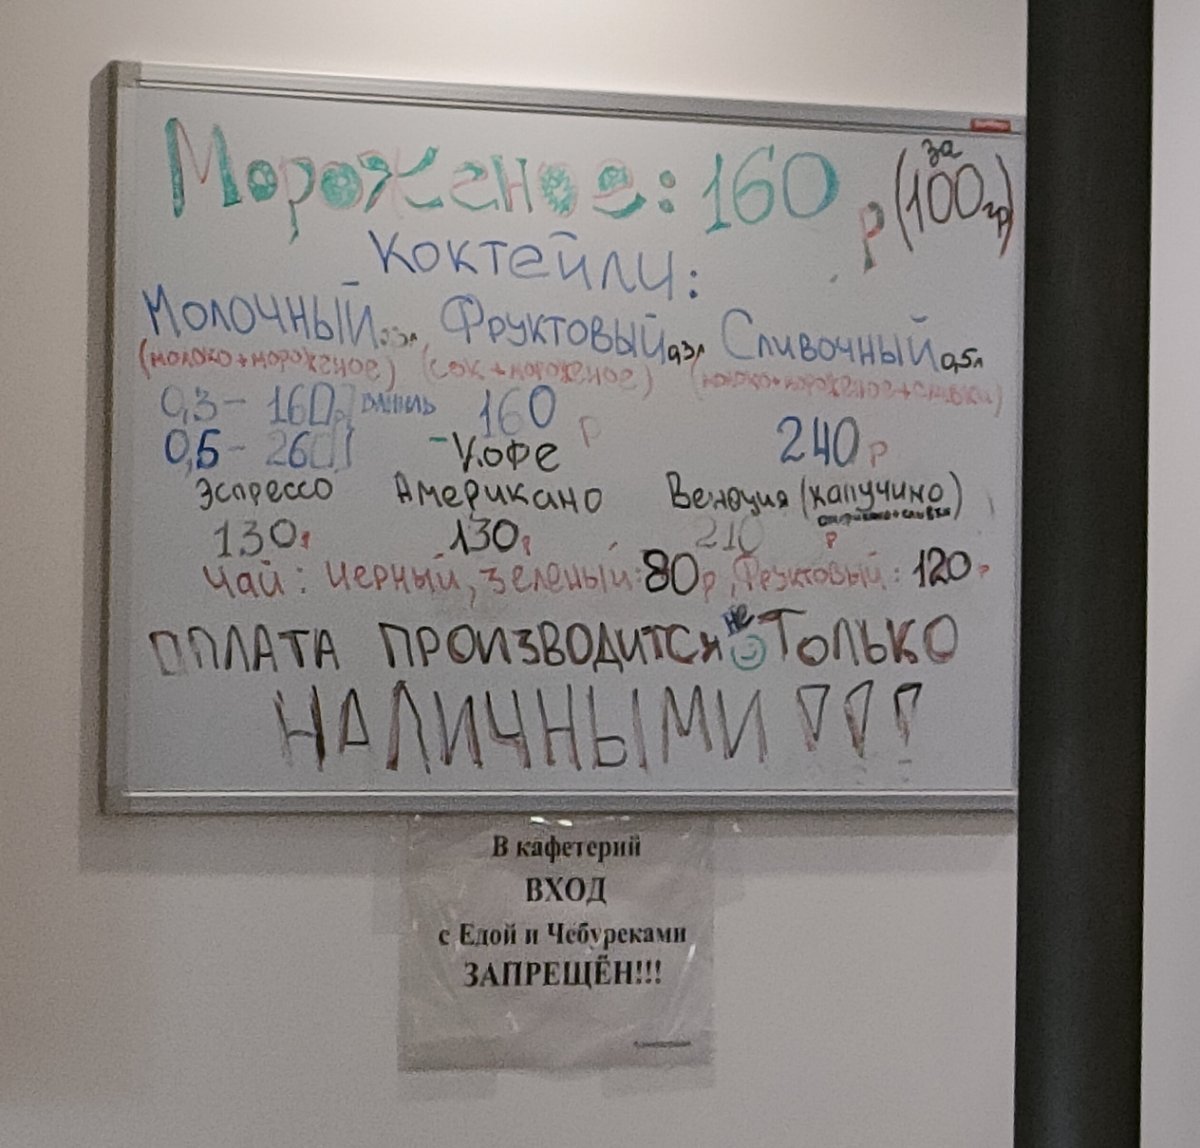 Мороженое: 160 р (за 100гр)
Коктейли:
Молочный Фруктовый 0,3л Сливочный 0,5л
(молоко+мороженое) (сок+мороженое) (молоко+мороженое+сливки)
0,3 - 160 ваниль 160 р 240 р
0,5 - 260
- Кофе
Эспрессо Американо Венеция (капучино)
130 р 130 р 210 р
Чай: черный, зеленый: 80 р, Фруктовый: 120 р
ОПЛАТА ПРОИЗВОДИТСЯ не ТОЛЬКО
НАЛИЧНЫМИ!!!
В кафетерий
ВХОД
с Едой и Чебуреками
ЗАПРЕЩЁН!!!